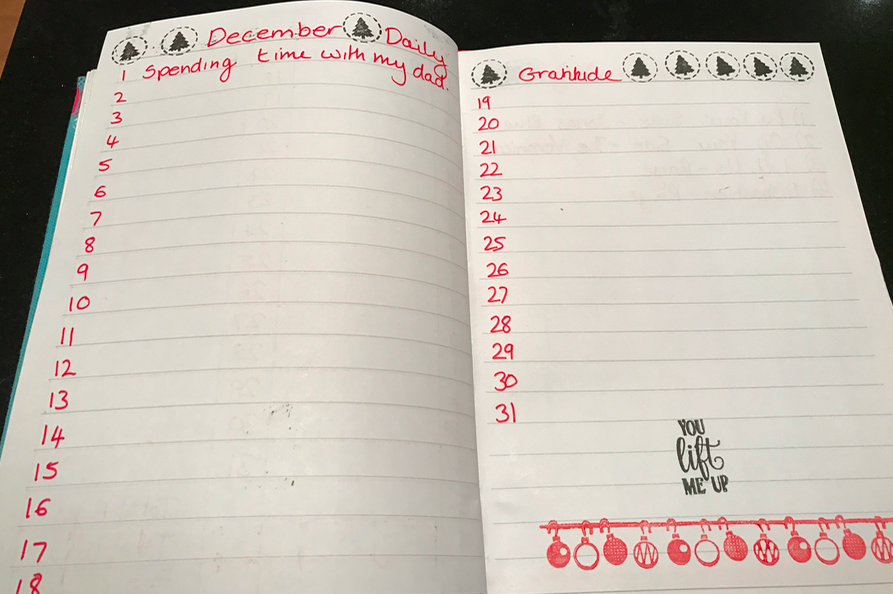 December Daily
1 Spending time with my dad.
2
3
4
5
6
7
8
9
10
11
12
13
14
15
16
17
18
Gratitude
19
20
21
22
23
24
25
26
27
28
29
30
31
YOU
lift
ME UP